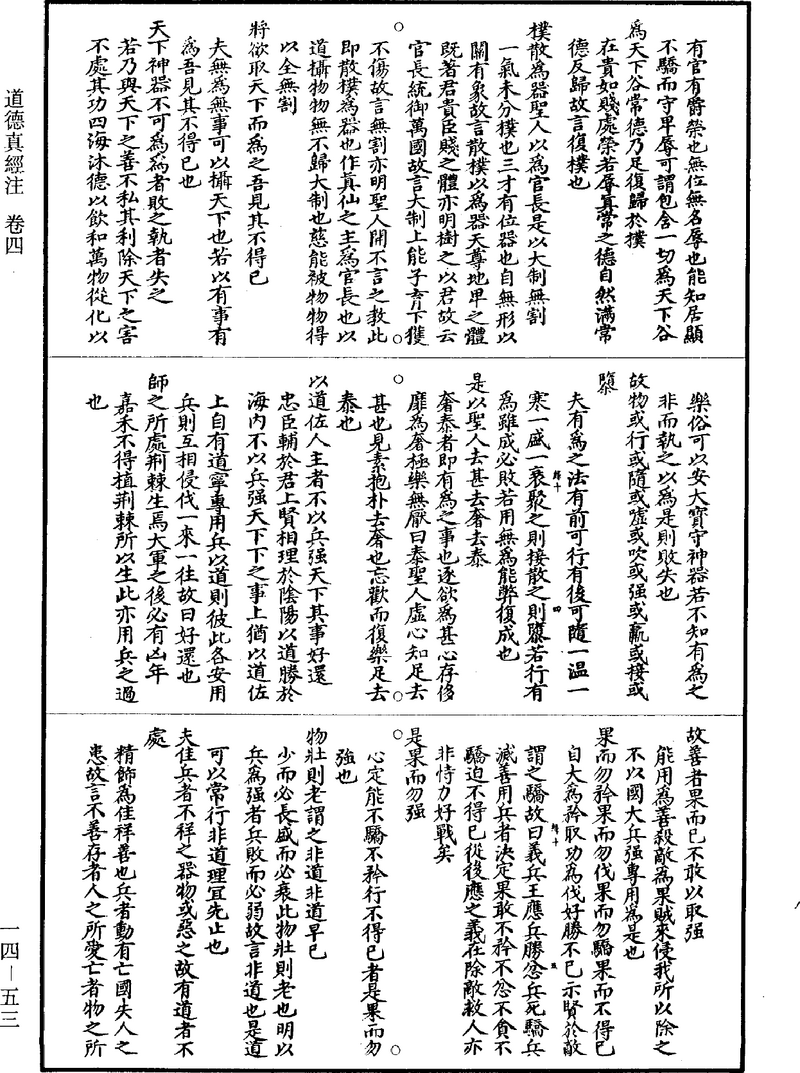 道德真經注 卷四
一四—五三
有官有爵榮也無位無名辱也能知居顯
不驕而守卑辱可謂包含一切為天下谷
為天下谷常德乃足復歸於樸
在貴如賤處榮若辱真常之德自然滿常
德反歸故言復樸也
樸散為器聖人以為官長是以大制無割
一氣未分樸也三才有位器也自無形以
關有象故言散樸以為器天尊地卑之體
既著君貴臣賤之體亦明樹之以君故云
官長統御萬國故言大制上能子育下獲
不傷故言無割亦明聖人開不言之教此
即散樸為器也作真仙之主為官長也以
道攝物物無不歸大制也慈能被物物得
以全無割
將欲取天下而為之吾見其不得已
夫無為無事可以攝天下也若以有事有
為吾見其不得已也
天下神器不可為為者敗之執者失之
若乃與天下之善不私其利除天下之害
不處其功四海沐德以飲和萬物從化以
樂俗可以安大寶守神器若不知有為之
非而執之以為是則敗失也
故物或行或隨或噓或吹或强或羸或接或
隳
夫有為之法有前可行有後可隨一温一
寒一盛一衰聚之則接散之則隳若行有
為雖成必敗若用無為能弊復成也
是以聖人去甚去奢去泰
奢泰者即有為之事也逐欲為甚心存侈
靡為奢極樂無厭曰泰聖人虛心知足去
甚也見素抱朴去奢也忘歡而復樂足去
泰也
以道佐人主者不以兵强天下其事好還
忠臣輔於君上賢相理於陰陽以道勝於
海內不以兵强天下下之事上猶以道佐
上自有道寧專用兵以道則彼此各安用
兵則互相侵伐一來一往故曰好還也
師之所處荆棘生焉大軍之後必有凶年
嘉禾不得植荆棘所以生此亦用兵之過
也
故善者果而已不敢以取强
能用為善殺敵為果賊來侵我所以除之
不以國大兵强專用為是也
果而勿矜果而勿伐果而勿驕果而不得已
自大為矜取功為伐好勝不已示賢於敵
謂之驕故曰義兵王應兵勝忿兵死驕兵
滅善用兵者決定果敢不矜不忿不貪不
驕迫不得已從後應之義在除敵救人亦
非恃力好戰矣
是果而勿强
心定能不驕不矜行不得已者是果而勿
强也
物壯則老謂之非道非道早已
少而必長盛而必衰此物壯則老也明以
兵為强者兵敗而必弱故言非道也是道
可以常行非道理宜先止也
夫佳兵者不祥之器物或惡之故有道者不
處
精飾為佳祥善也兵者動有亡國失人之
患故言不善存者人之所愛亡者物之所